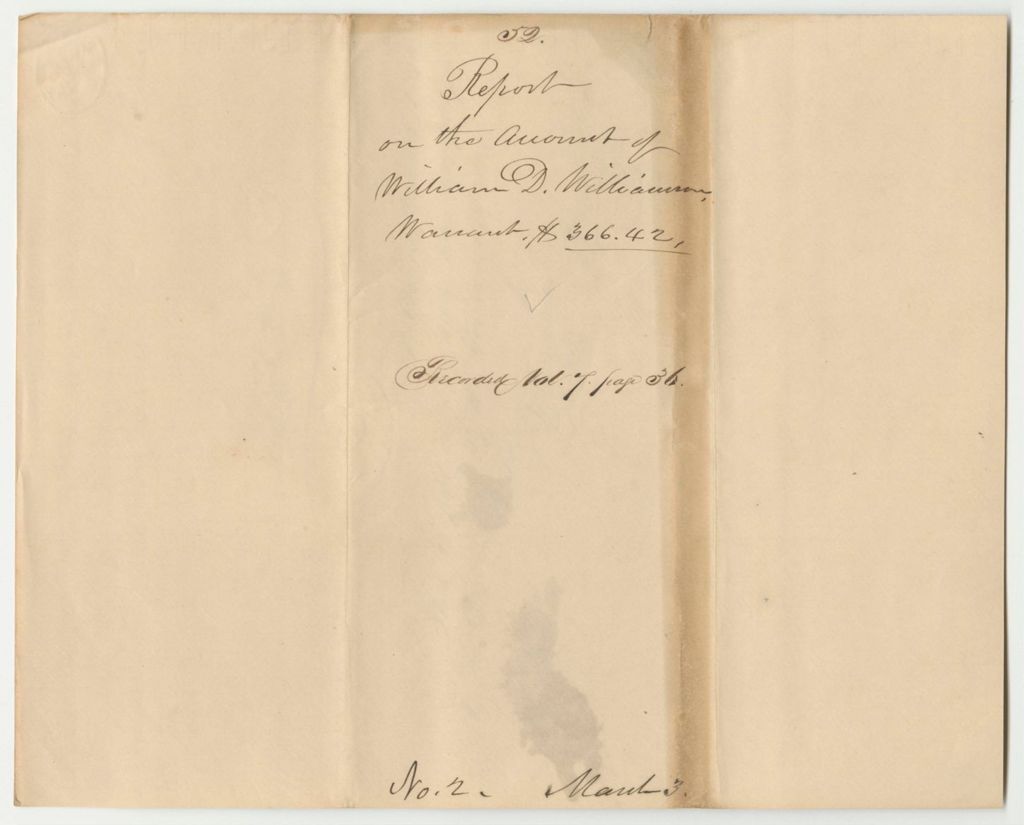 52.
Report
on the Account of
William D. Williamson,
Warrant. $366.42,
Recorded Vol. 7. page 36.
No. 2. March 3.